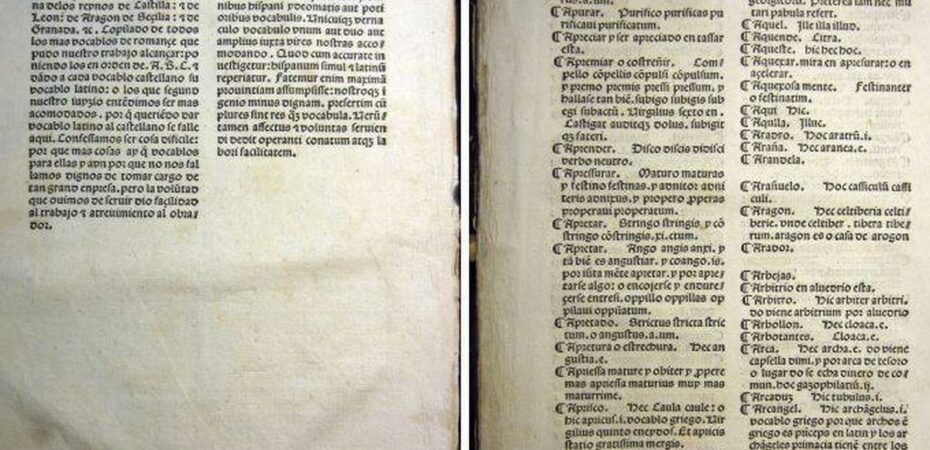 na delos reynos de Castilla: ⁊ de
Leon: de Aragon de Secilia: ⁊ de
Granada. ⁊c. Copilado de todos
los mas vocablos de romançe que
pudo nuestro trabajo alcançar: po
niendo los en orden de. A. B. C. ⁊
dādo a cada vocablo castellano su
vocablo latino: o los que segund
nuestro iuyzio entēdimos ser mas
acomodados. por q̄ queriēdo dar
vocablo latino al castellano se falle
aqui. Confessamos ser cosa dificile:
por que mas cosas ay q̄ vocablos
para ellas y avn por que no nos fal
lamos dignos de tomar cargo de
tan grand enpresa. pero la volūtad
que ouimos de seruir dio facilidad
al trabajo ⁊ atreuimiento al obra/
dor.
nibus hispani ydeomatis aut poti
oribus vocabulis. Unicuiq; verna
culo vocabulo vnum aut duo aut
amplius iuxta vires nostras acco/
modando. Quod cum accurate in
uestigetur: hispanum simul ⁊ latinū
reperiatur. Fatemur enim maximā
prouintiam assumpsisse: nostroq; i
genio minus dignam. presertim cū
plures sint res q̄; vocabula. Verū/
tamen affectus ⁊ voluntas seruien
di dedit operanti conatum atq; la
bori facilitatem.
Apurar. Purifico purificas pu
rificatus purificatum.
Apreciar y ser apreciado en tassar
esta.
Apremiar o costreñir. Com/
pello cōpellis cōpulsi cōpulsum.
y premo premis pressi pressum. y
hallase tan biē. subigo subigis sub
egi subactū. Virgilius sexto en.
Castigat auditq; dolus. subigit
q; fateri.
Aprender. Disco discis didici
verbo neutro.
Apressurar. Maturo maturas
y festino festinas. y adnitor adni
teris adnixus. y propero ꝓperas
properaui properatum.
Apretar. Stringo stringis y cō
stringo cōstringis. xi. ctum.
Apretar. Ango angis anxi. y
tā biē es angustiar. y coango. is.
por iūta mēte apretar. y por apre/
tarse algo: o encojerse y endure/
çerse entresi. oppillo oppillas op
pilaui oppilatum.
Apretado. Strictus stricta stric
tum. o angustus. a. um.
Apretura o estrechura. Hec an
gustia. e.
Apriessa mature y obiter y ꝓpere
mas apriessa maturius muy mas
maturrime.
Aprisco. Hec Caula caule: o
hic apricus. i. vocablo griego. Vir
gilius quinto eneydos. Et apricis
statio gratissima mergis.
tari pabula refert.
Aquel. Ille illa illud.
Aquende. Citra.
Aqueste. hic hec hoc.
Aquexar. mira en apresurar: o en
açelerar.
Aquexosa mente. Festinanter
o festinatim.
Aqui Hic.
Aquilla. Illuc.
Aradro. Hoc aratrū. i.
Araña. Hec aranea. e.
Arandela.
Arañuelo. Hoc cassiculū cassi
culi.
Aragon. Hec celtiberia celti/
berie. vnde celtiber. tibera tibe/
rum. aragon es o casa de aragon
Arador.
Arbejas.
Arbitrio en aluedrio esta.
Arbitro. Hic arbiter arbitri.
do viene arbitrium por aluedrio
Arbollon. Hec cloaca. e.
Arbotantes. Cloaca. e.
Arca. Hec archa. e. do viene
capsella dimi. y por arca de tesoro
o lugar do se echa dinero de co/
mun. hoc gazophilatiū. ij.
Arcaduz Hic tubulus. i.
Arcangel. Hic archāgelus. i.
vocablo griego por que archos ē
griego es prīceps en latin y los ar
chāgeles primacia tienē entre los